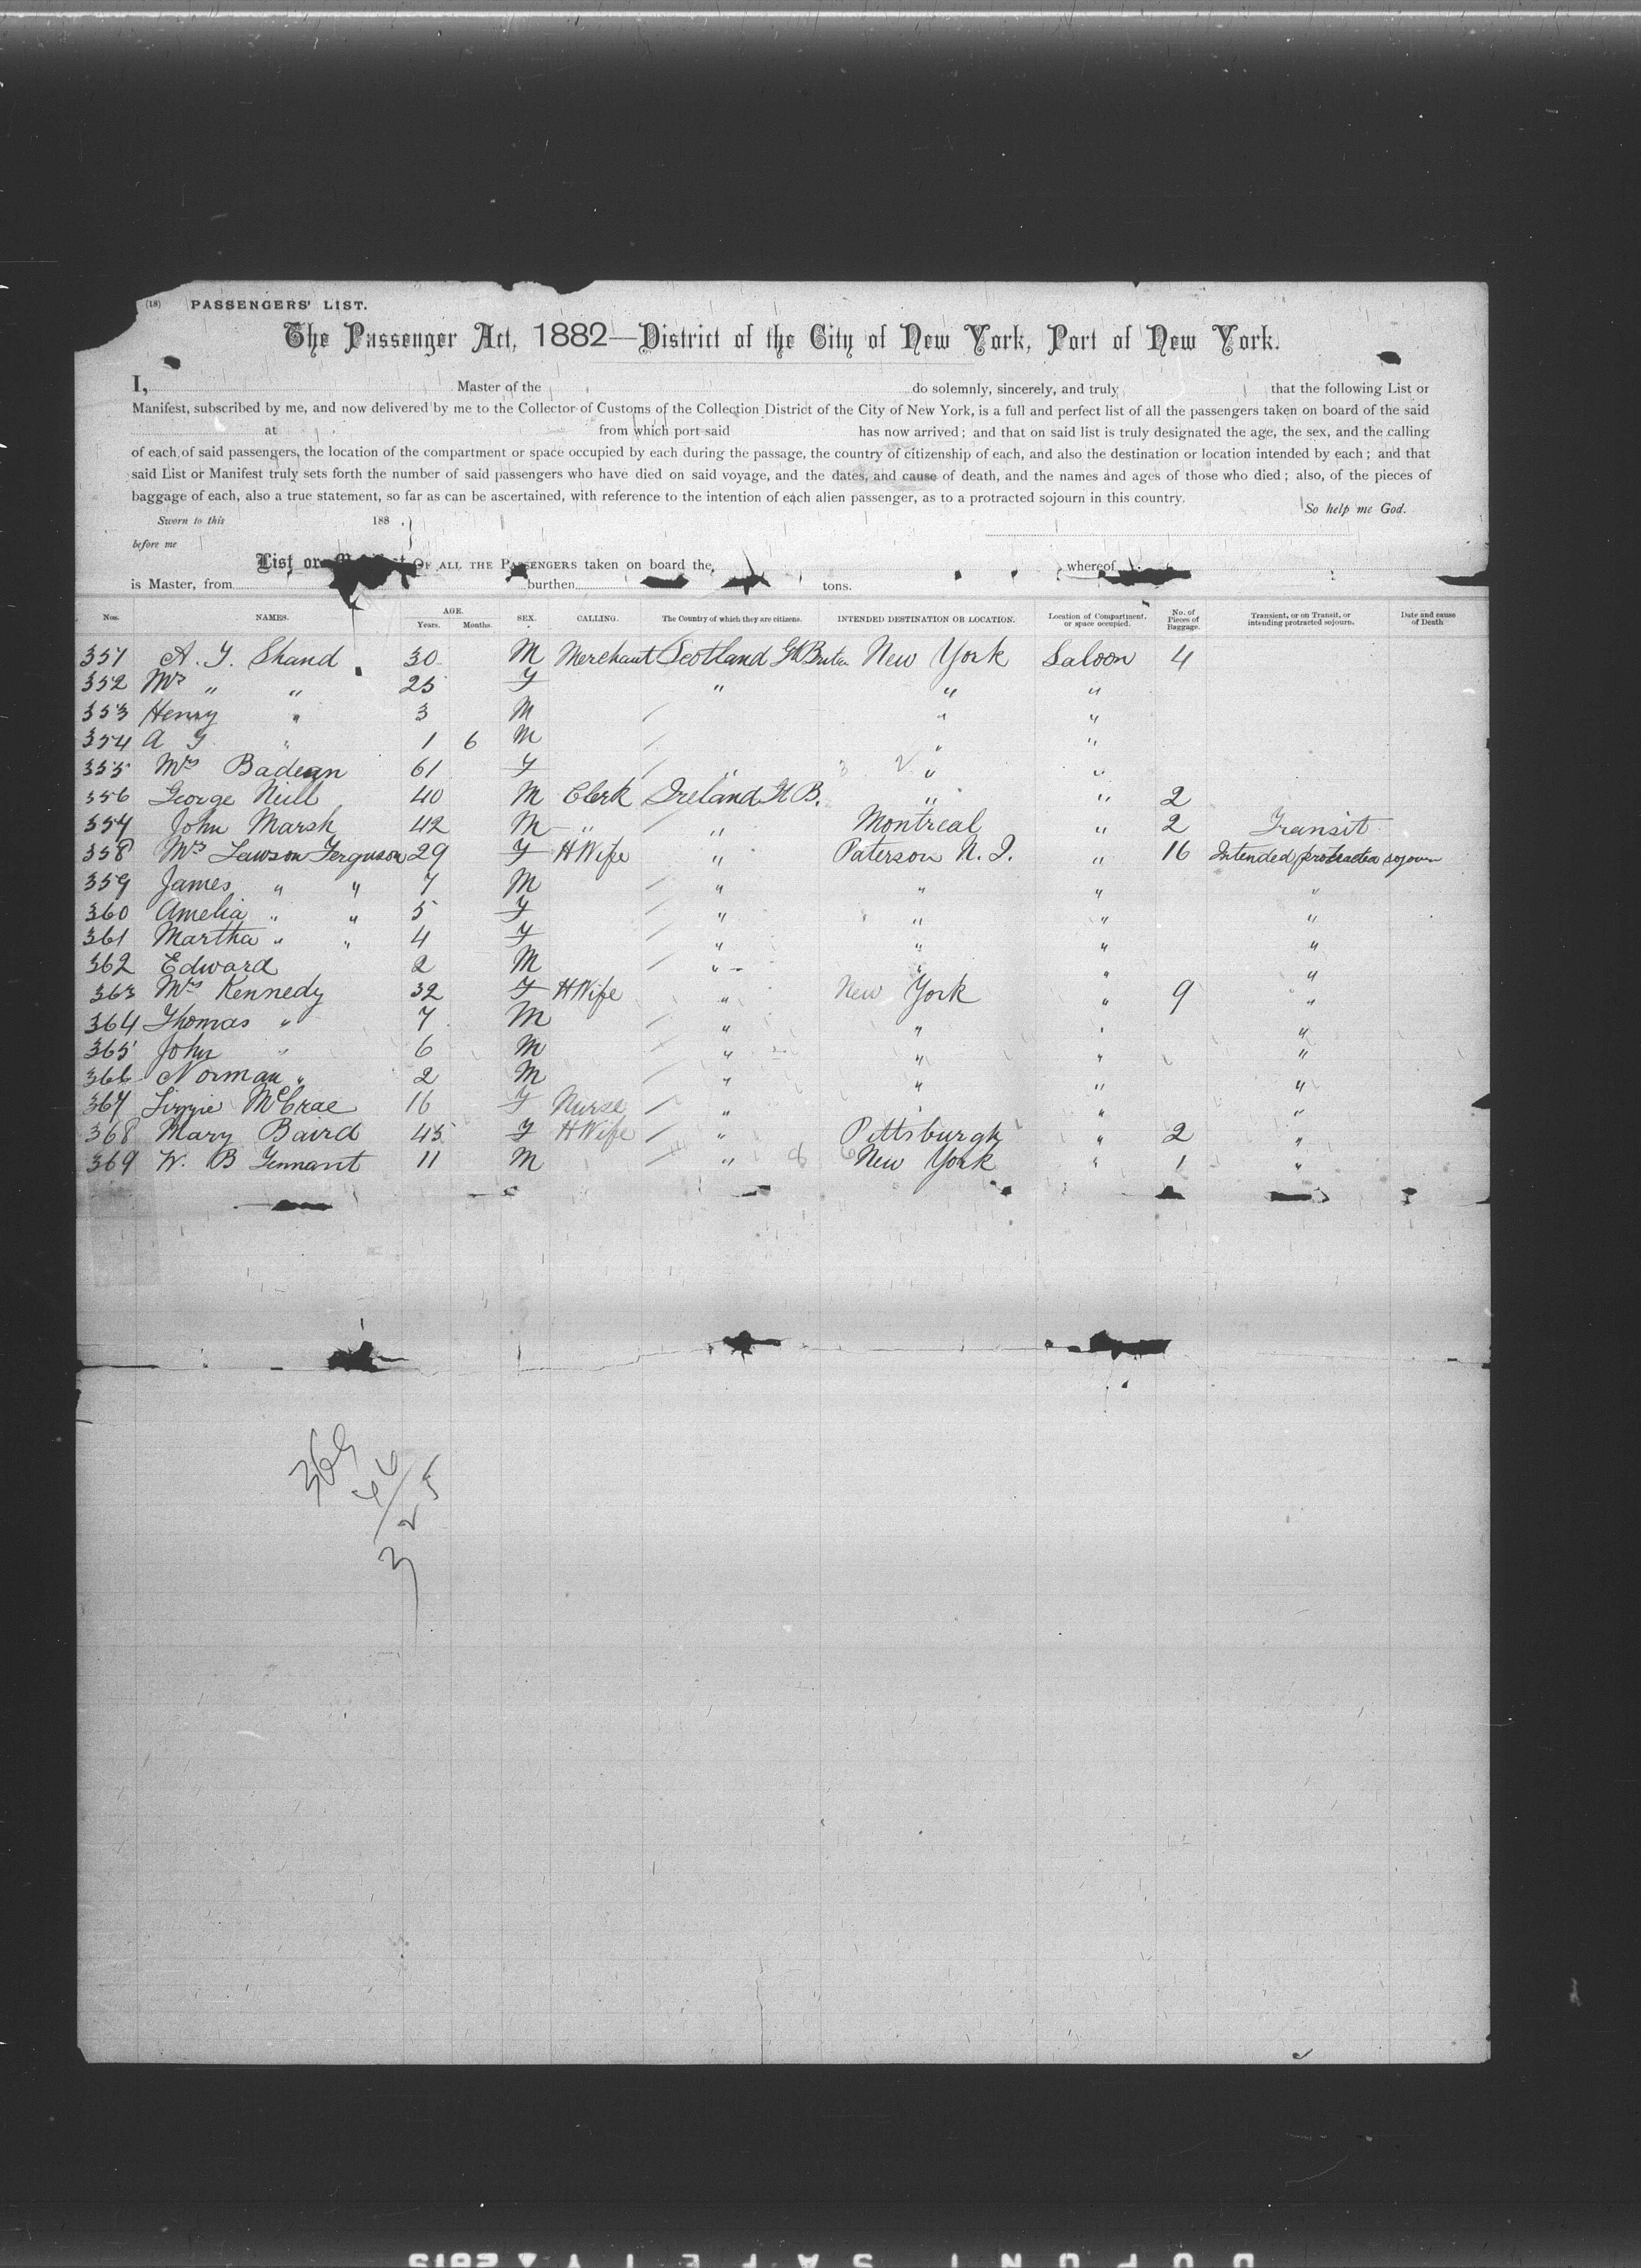 (18) PASSENGERS' LIST.
The Passenger Act, 1882—District of the City of New York, Port of New York.
I, Master of the do solemnly, sincerely, and truly that the following List or
Manifest, subscribed by me, and now delivered by me to the Collector of Customs of the Collection District of the City of New York, is a full and perfect list of all the passengers taken on board of the said
at from which port said has now arrived; and that on said list is truly designated the age, the sex, and the calling
of each of said passengers, the location of the compartment or space occupied by each during the passage, the country of citizenship of each, and also the destination or location intended by each; and that
said List or Manifest truly sets forth the number of said passengers who have died on said voyage, and the dates, and cause of death, and the names and ages of those who died; also, of the pieces of
baggage of each, also a true statement, so far as can be ascertained, with reference to the intention of each alien passenger, as to a protracted sojourn in this country.
So help me God.
Sworn to this 188
before me
List or OF ALL THE PASSENGERS taken on board the, whereof
is Master, from burthen tons.
Nos. NAMES. AGE. Years. Months. SEX. CALLING. The Country of which they are citizens. INTENDED DESTINATION OR LOCATION. Location of Compartment, or space occupied. No. of Pieces of Baggage. Transient, or on Transit, or intending protracted sojourn. Date and cause of Death
351 A. J. Shand 30 M Merchant Scotland Gt Britn New York Saloon 4
352 Mrs " " 25 F " " "
353 Henry " 3 M " "
354 A J " 1 6 M " "
355 Mrs 61 F " " "
356 George Neill 40 M Clerk Ireland G B. " " 2
357 John Marsh 42 M " " Montreal " 2 Transit
358 Mrs Lawson Ferguson 29 F H Wife " Paterson N. J. " 16 Intended protracted sojourn
359 James " " 7 M " " " "
360 Amelia " " 5 F " " " "
361 Martha " " 4 F " " " "
362 Edward 2 M " " " "
363 Mrs Kennedy 32 F H Wife " New York " 9 "
364 Thomas " 7 M " " " "
365 John " 6 M " " " "
366 Norman " 2 M " " " "
367 Lizzie McCrae 16 F Nurse " " " "
368 Mary Baird 45 F H Wife " Pittsburgh " 2 "
369 W. B Tennant 11 M " New York " 1 "
369
325